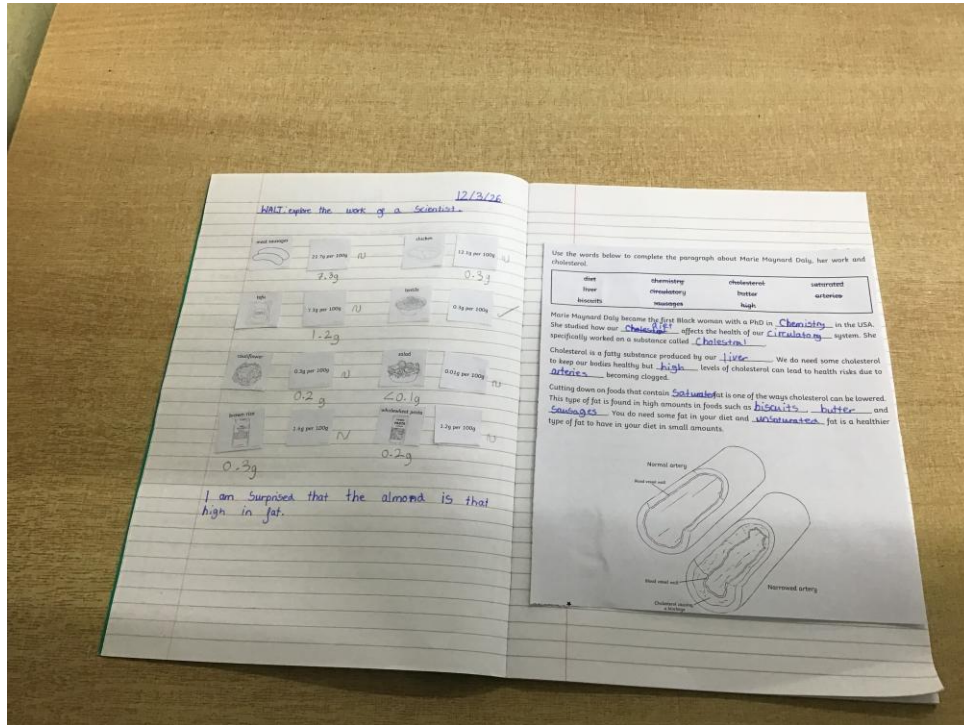 12/3/26
WALT: explore the work of a Scientist.
meat sausages
chicken
per 100g
per 100g
7.3g
0.3g
tofu
7.3g per 100g
0.3g per 100g
1.2g
cauliflower
salad
0.3g per 100g
0.01g per 100g
0.2g
<0.1g
brown rice
wholewheat pasta
per 100g
1.2g per 100g
0.3g
0.2g
I am Surprised that the almond is that
high in fat.
Use the words below to complete the paragraph about Marie Maynard Daly, her work and
cholesterol.
diet chemistry cholesterol saturated
liver circulatory butter arteries
biscuits sausages high
Marie Maynard Daly became the first Black woman with a PhD in Chemistry in the USA.
She studied how our diet affects the health of our Circulatory system. She
specifically worked on a substance called Cholestral
Cholesterol is a fatty substance produced by our liver. We do need some cholesterol
to keep our bodies healthy but high levels of cholesterol can lead to health risks due to
arteries becoming clogged.
Cutting down on foods that contain Saturated fat is one of the ways cholesterol can be lowered.
This type of fat is found in high amounts in foods such as biscuits, butter and
Sausages. You do need some fat in your diet and unsaturated fat is a healthier
type of fat to have in your diet in small amounts.
Normal artery
Blood vessel wall
Blood vessel wall
Narrowed artery
Cholesterol causing
a blockage